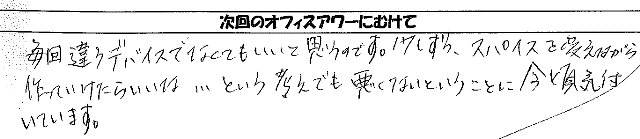 次回のオフィスアワーにむけて
毎回違うデバイスでなくてもいいと思うのです。少しずつ、スパイスを変えながら
作っていけたらいいな…という考えでも悪くないということに今頃気付
いています。